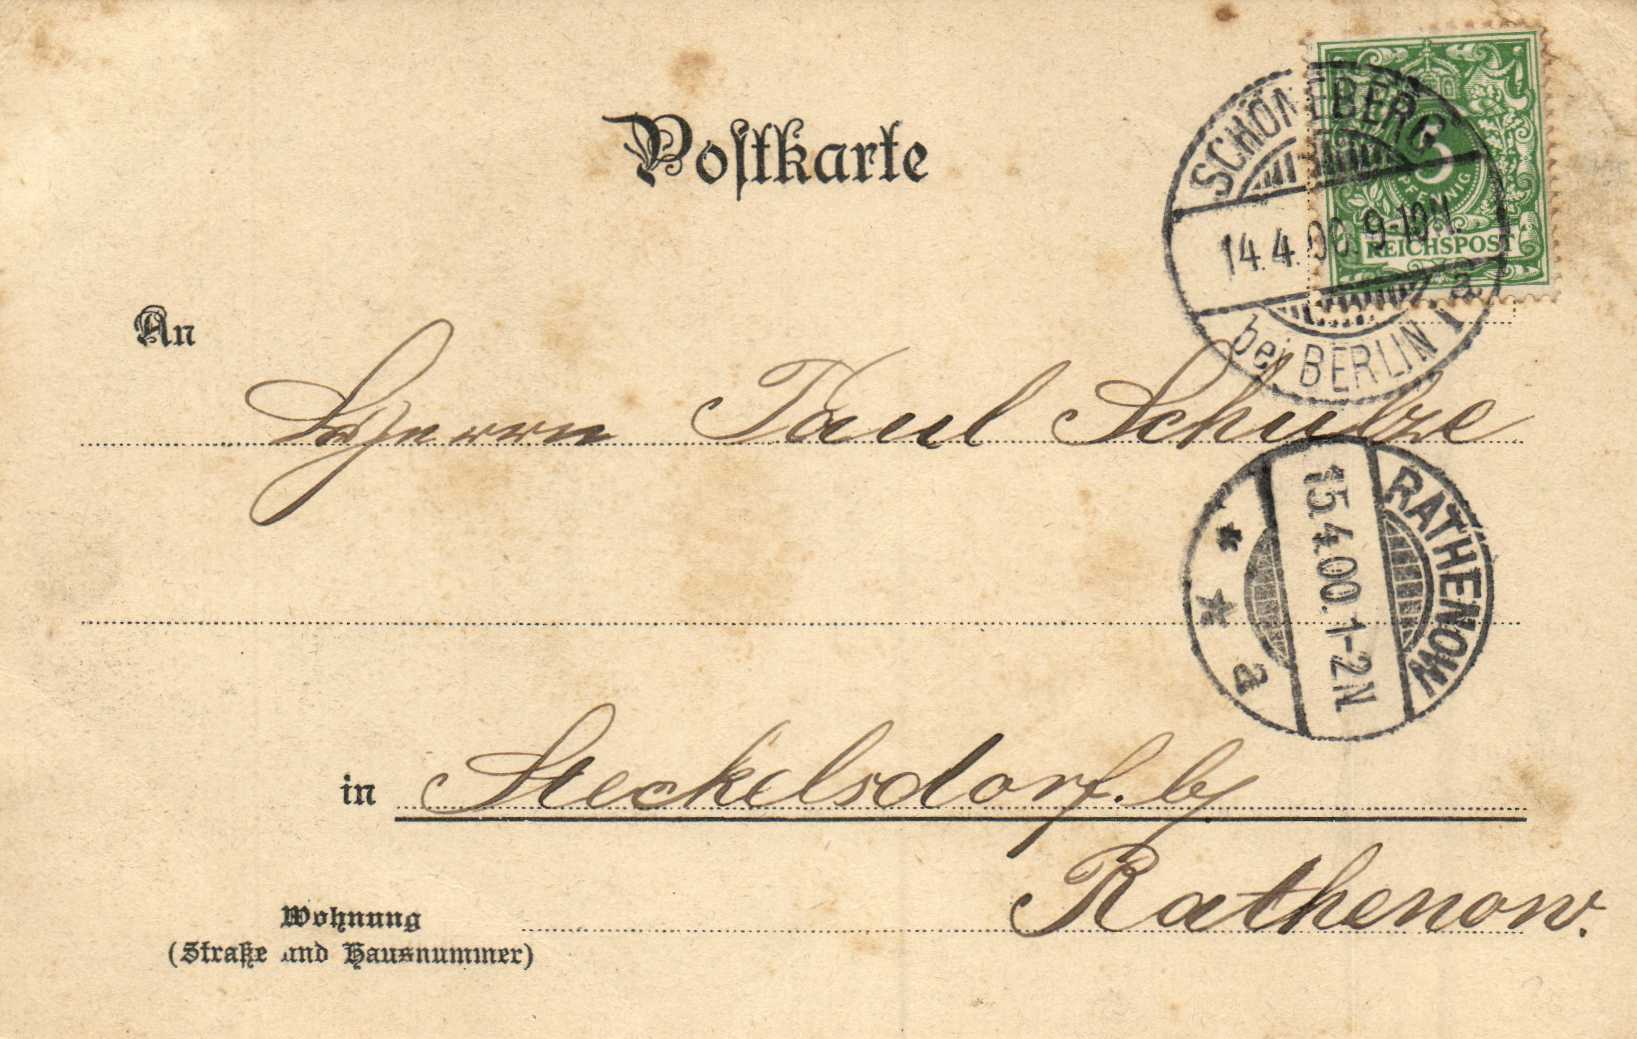 Postkarte
SCHÖNEBERG
bei BERLIN 1 a
14.4.00. 9-10N.
5
PFENNIG
REICHSPOST
An
Herrn Paul Schulze
RATHENOW
15.4.00. 1-2N
* * a
in Steckelsdorf. b/
Rathenow.
Wohnung
(Straße und Hausnummer)